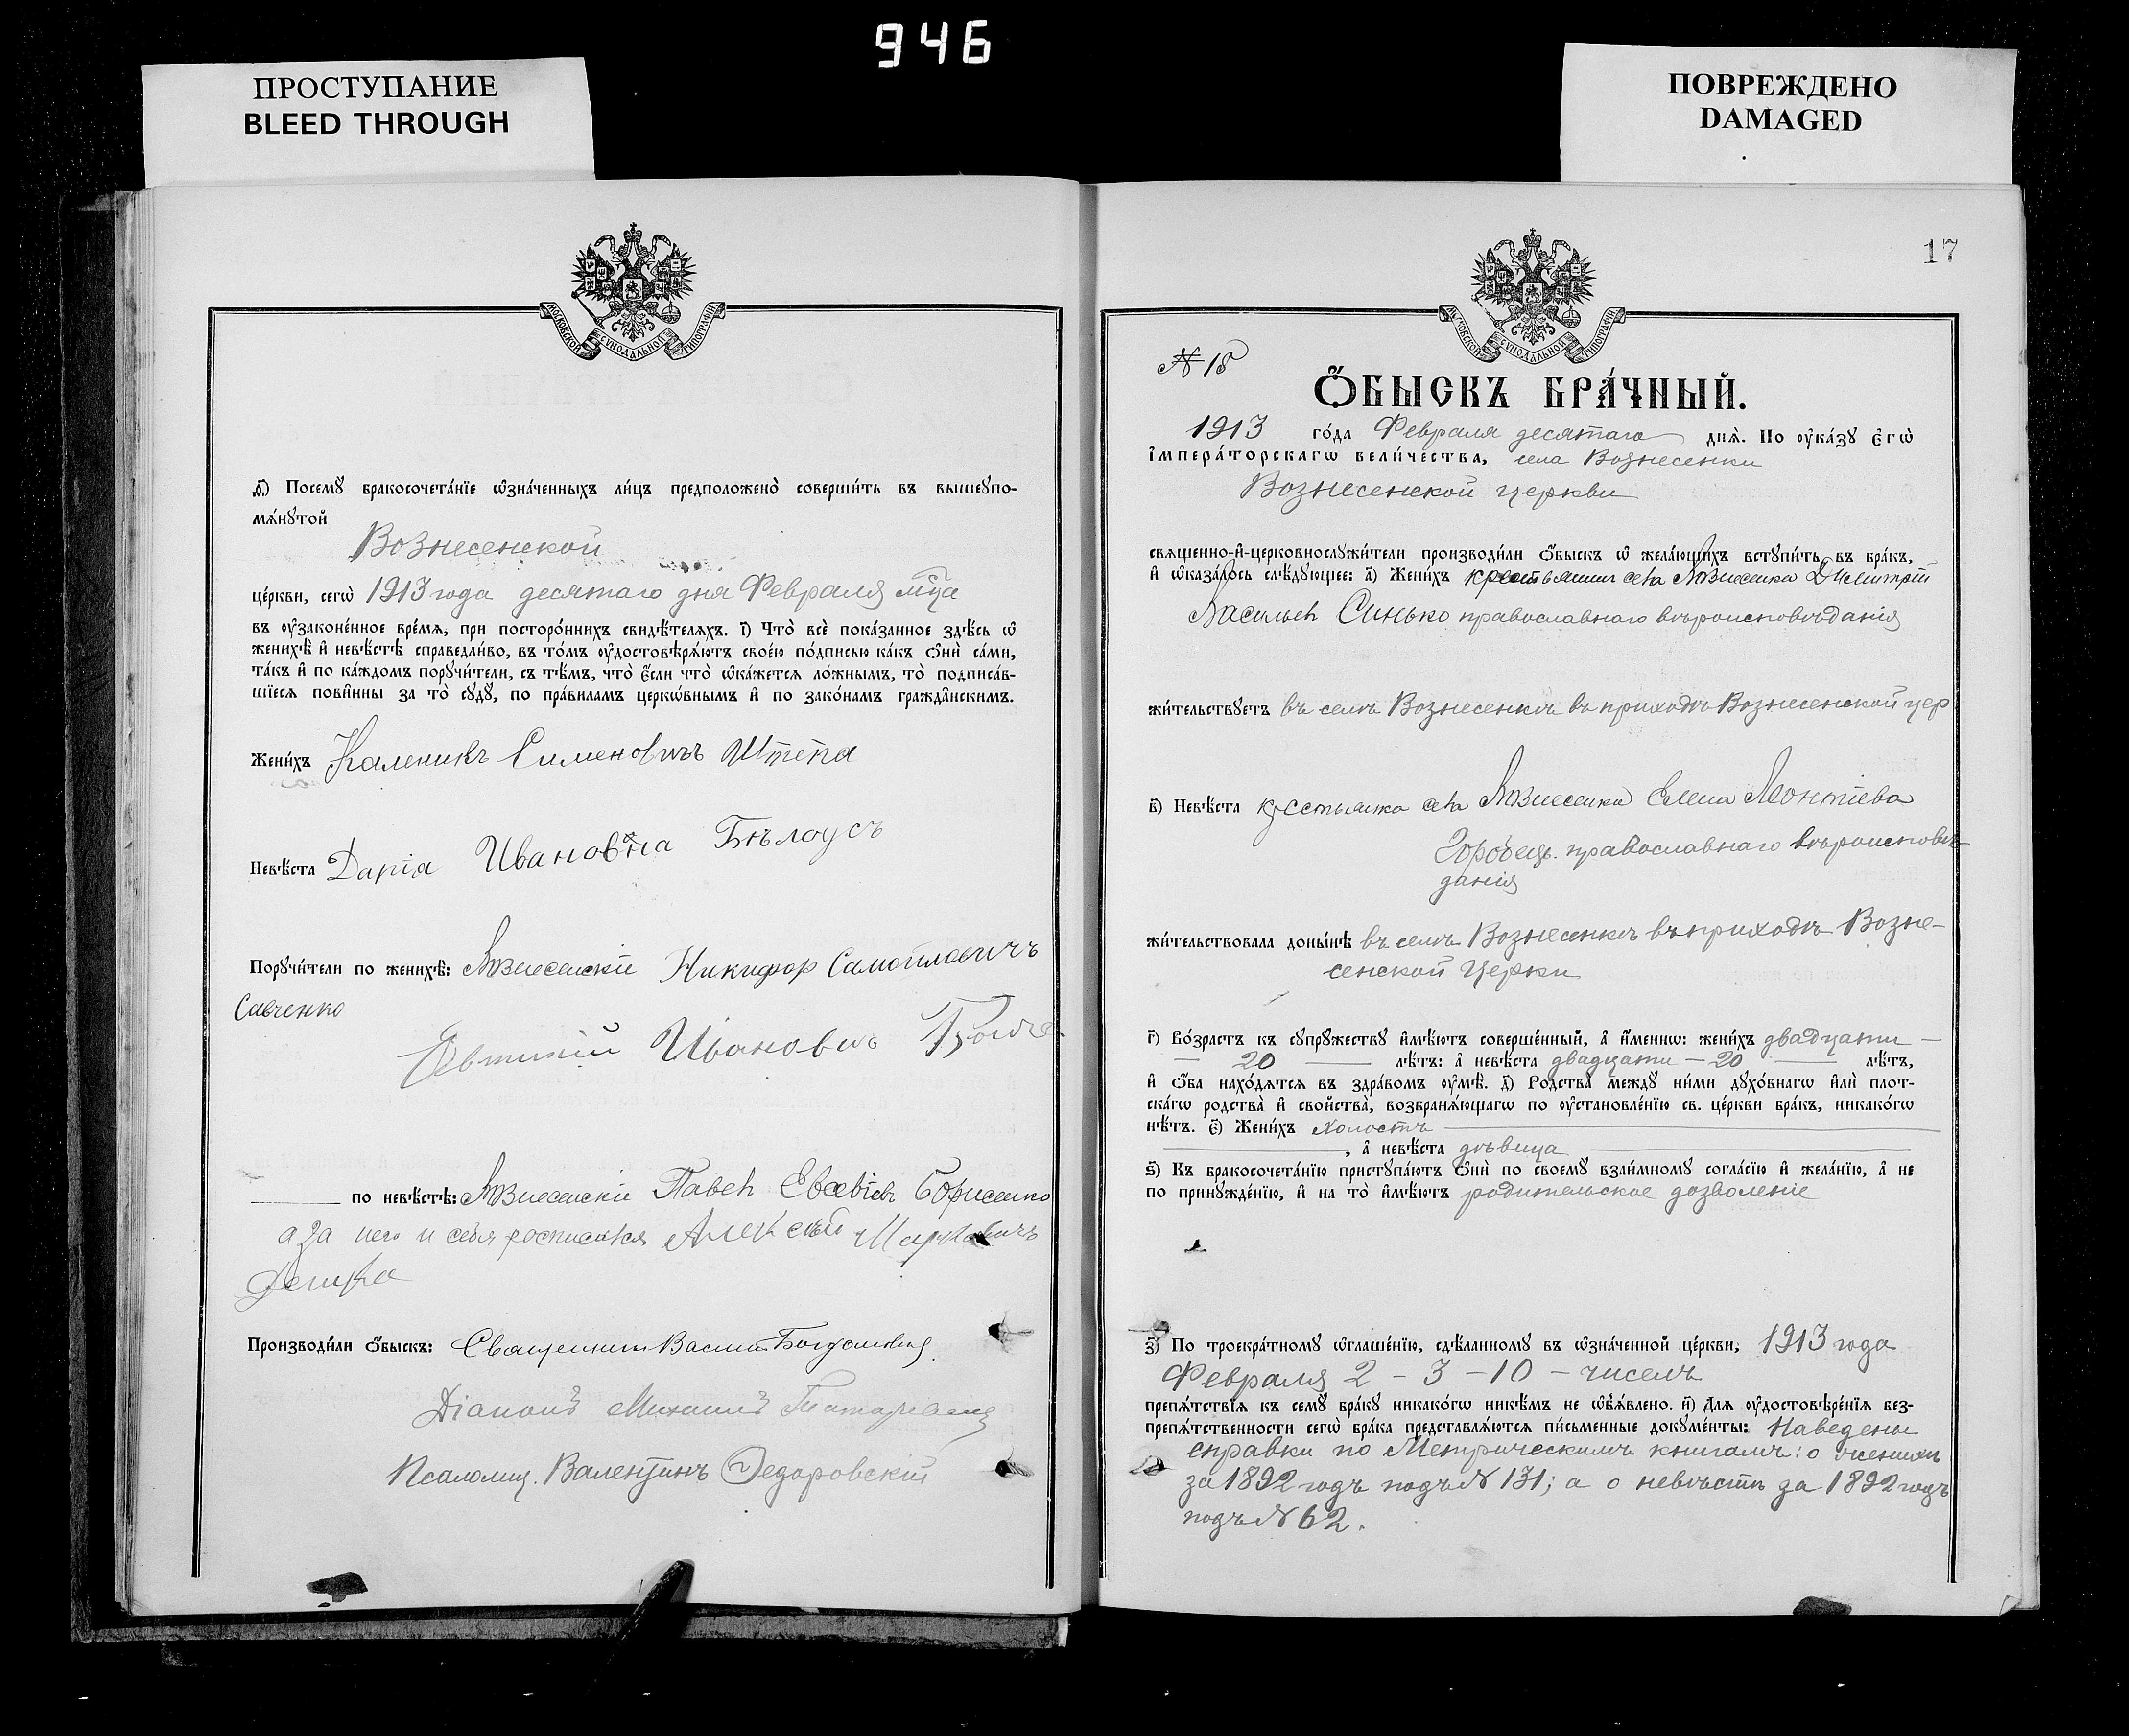 946
ПРОСТУПАНИЕ
BLEED THROUGH
ПОВРЕЖДЕНО
DAMAGED
МОСКОВСКОЙ СѴНОДАЛЬНОЙ ТИПОГРАФІИ
ѳ҃) Посемꙋ бракосочета́нїе ѡзна́ченныхъ ли́цъ предположено̀ соверши́ть въ вышеупо-
мѧ́нꙋтой
Вознесенской
це́ркви, сегѡ̀ 1913 года десятаго дня Февраля мца
въ ᲂу҆законе́нное вре́мѧ, при посторо́ннихъ свидѣ́телѧхъ. і҃) Что̀ всѐ пока́занное здѣ́сь ѡ҆
женихѣ̀ и҆ невѣ́стѣ справедли́во, въ то́мъ ᲂу҆достовѣрѧ́ютъ свое́ю по́дписью ка́къ ѻ҆нѝ са́ми,
та́къ и҆ по ка́ждомъ порꙋчи́тели, съ тѣ́мъ, что̀ є҆́сли что̀ ѡ҆ка́жетсѧ ло́жнымъ, то̀ подписа́в-
шїесѧ пови́нны за то̀ сꙋдꙋ̀, по пра́виламъ церко́внымъ и҆ по зако́намъ гражда́нскимъ.
Жени́хъ Каленикъ Сименовичъ Штепа
Невѣ́ста Дарія Ивановна Бѣлоусъ
Порꙋчи́тели по женихѣ̀: Вознесенскіе Никифор Самойлович
Савченко
Евтихій Иванович
по невѣ́стѣ: Вознесенскіе Павел Евсевіевъ Борисенко
а за него и себя росписался Алексѣй Маркович
Демка
Производи́ли ѻ҆́быскъ: Священник Василій
Діаконъ Михаилъ
Псаломщ. Валентинъ Федоровскій
17
МОСКОВСКОЙ СѴНОДАЛЬНОЙ ТИПОГРАФІИ
№ 18
Ѻ҆́БЫСКЪ БРА́ЧНЫЙ.
1913 го́да Февраля десятаго днѧ̀. По ᲂу҆ка́зꙋ є҆гѡ̀
і҆мпера́торскагѡ вели́чества, села Вознесенки
Вознесенской церкви
свѧщенно-и҆-церковнослꙋжи́тели производи́ли ѻ҆́быскъ ѡ҆ жела́ющихъ встꙋпи́ть въ бра́къ,
и҆ ѡ҆каза́лось слѣ́дꙋющее: а҃) Жени́хъ крестьянин села Вознесенка Димитрій
Васильев Синько православнаго вѣроисповѣданія
жи́тельствꙋетъ въ селѣ Вознесенкѣ въ приходѣ Вознесенской цер
в҃) Невѣ́ста крестьянка села Вознесенки Елена Леонтіева
Горобець. православнаго вѣроисповѣ-
данія
жи́тельствовала доны́нѣ въ селѣ Вознесенкѣ въ приходѣ Возне-
сенской Церкви
г҃) Во́зрастъ къ сꙋпрꙋ́жествꙋ и҆мѣ́ютъ соверше́нный, а҆ и҆́менно: жени́хъ двадцати —
— 20 — лѣ́тъ: а҆ невѣ́ста двадцати — 20 — лѣ́тъ,
и҆ ѻ҆́ба нахо́дѧтсѧ въ здра́вомъ ᲂу҆мѣ̀. д҃) Родства̀ междꙋ̀ ни́ми дꙋхо́внагѡ и҆лѝ плот-
ска́гѡ родства̀ и҆ свойства̀, возбранѧ́ющагѡ по ᲂу҆становле́нїю св. це́ркви бра́къ, никако́гѡ
нѣ́тъ. є҃) Жени́хъ холостъ
, а҆ невѣ́ста дѣвица
ѕ҃) Къ бракосочета́нїю пристꙋпа́ютъ ѻ҆нѝ по своемꙋ̀ взаи́мномꙋ согла́сїю и҆ жела́нїю, а҆ не
по принꙋжде́нїю, и҆ на то̀ и҆мѣ́ютъ родительское дозволеніе
з҃) По троекра́тномꙋ ѡ҆глаше́нїю, сдѣ́ланномꙋ въ ѡ҆зна́ченной це́ркви, 1913 года
Февраля 2 – 3 – 10 – чиселъ
препѧ́тствїѧ къ семꙋ̀ бра́кꙋ никако́гѡ никѣ́мъ не ѡ҆б̾ѧ́влено. и҃) Длѧ̀ ᲂу҆достовѣре́нїѧ без-
препѧ́тственности сегѡ̀ бра́ка представлѧ́ютсѧ пи́сьменные докꙋме́нты: Наведены
справки по Метрическимъ книгамъ: о женихѣ
за 1892 годъ подъ № 131; а о невѣстѣ за 1892 годъ
подъ № 62.